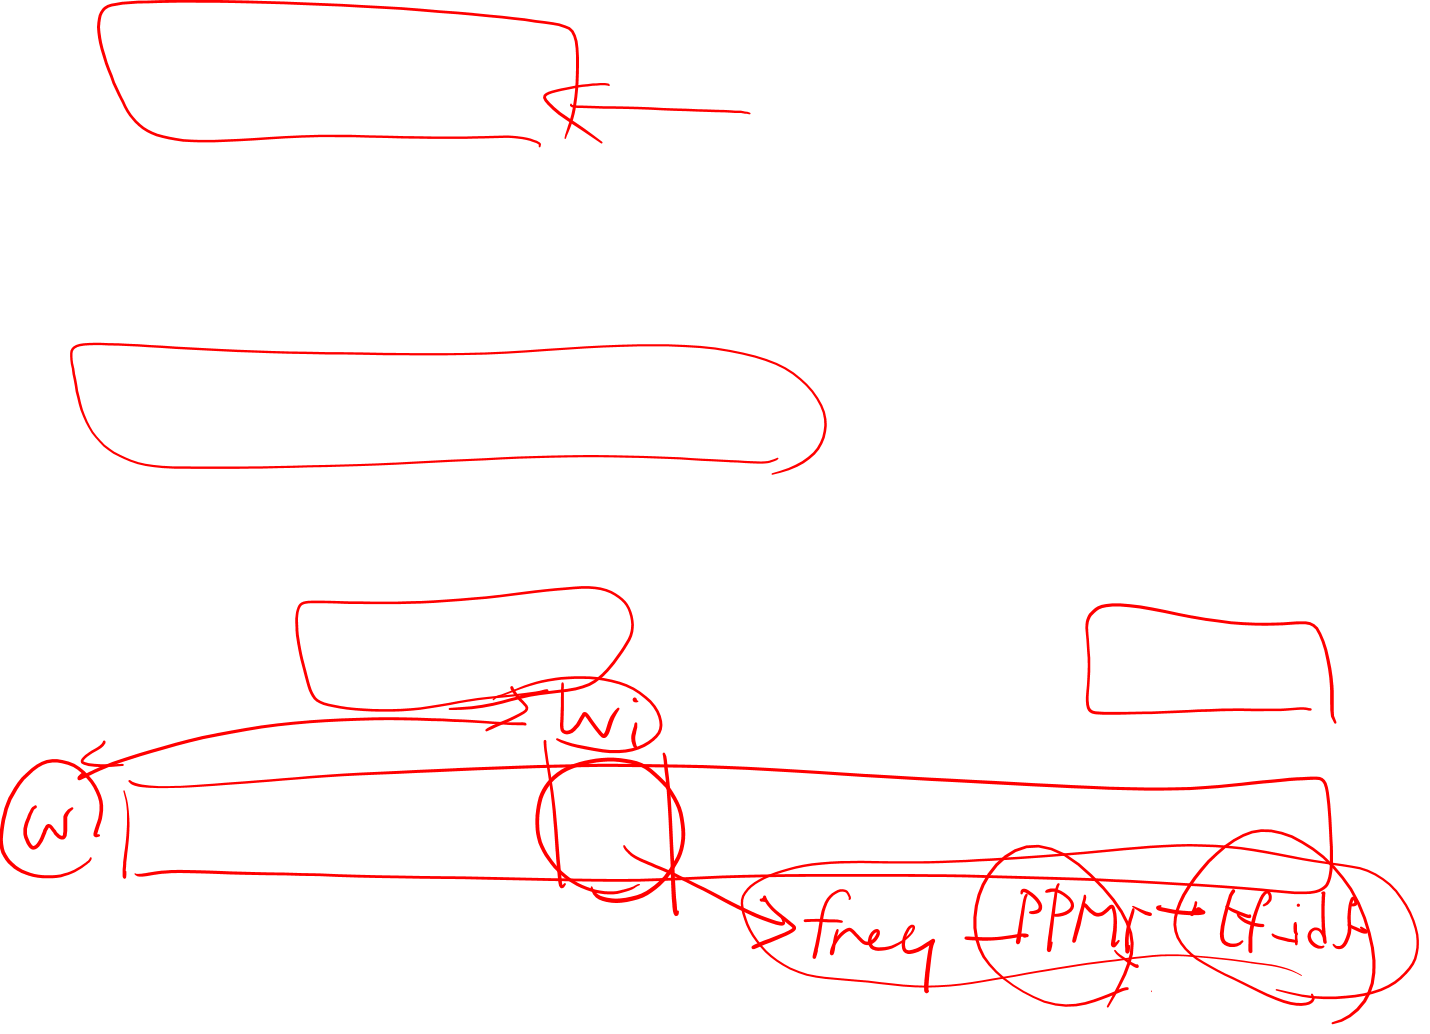 wi
w
freq - PPMI - tf-idf